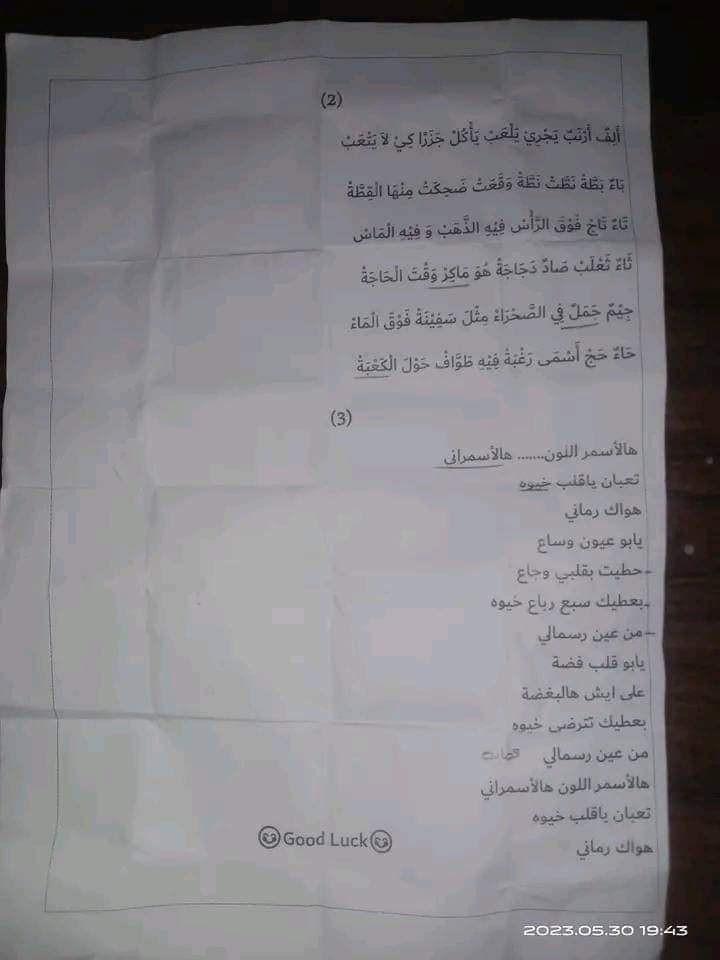 (2)
أَلِفٌ أَرْنَبٌ يَجْرِيْ يَلْعَبْ يَأْكُلْ جَزَرًا كِيْ لاَ يَتْعَبْ
بَاءٌ بَطَّةْ نَطَّتْ نَطَّةْ وَقَعَتْ ضَحِكَتْ مِنْهَا الْقِطَّةْ
تَاءٌ تَاجْ فَوْقَ الرَّأْسْ فِيْهِ الذَّهَبْ وَ فِيْهِ الْمَاسْ
ثَاءٌ ثَعْلَبْ صَادْ دَجَاجَةْ هُوَ مَاكِرْ وَقْتَ الْحَاجَةْ
جِيْمٌ جَمَلٌ فِي الصَّحْرَاءْ مِثْلَ سَفِيْنَةْ فَوْقَ الْمَاءْ
حَاءٌ حَجْ أَسْمَى رَغْبَةْ فِيْهِ طَوَّافْ حَوْلَ الْكَعْبَةْ
(3)
هالأسمر اللون....... هالأسمراني
تعبان ياقلب خيوه
هواك رماني
يابو عيون وساع
-حطيت بقلبي وجاع
-بعطيك سبع رباع خيوه
-من عين رسمالي
يابو قلب فضة
على ايش هالبغضة
بعطيك تترضى خيوه
من عين رسمالي
هالأسمر اللون هالأسمراني
تعبان ياقلب خيوه
هواك رماني
Good Luck
2023.05.30 19:43